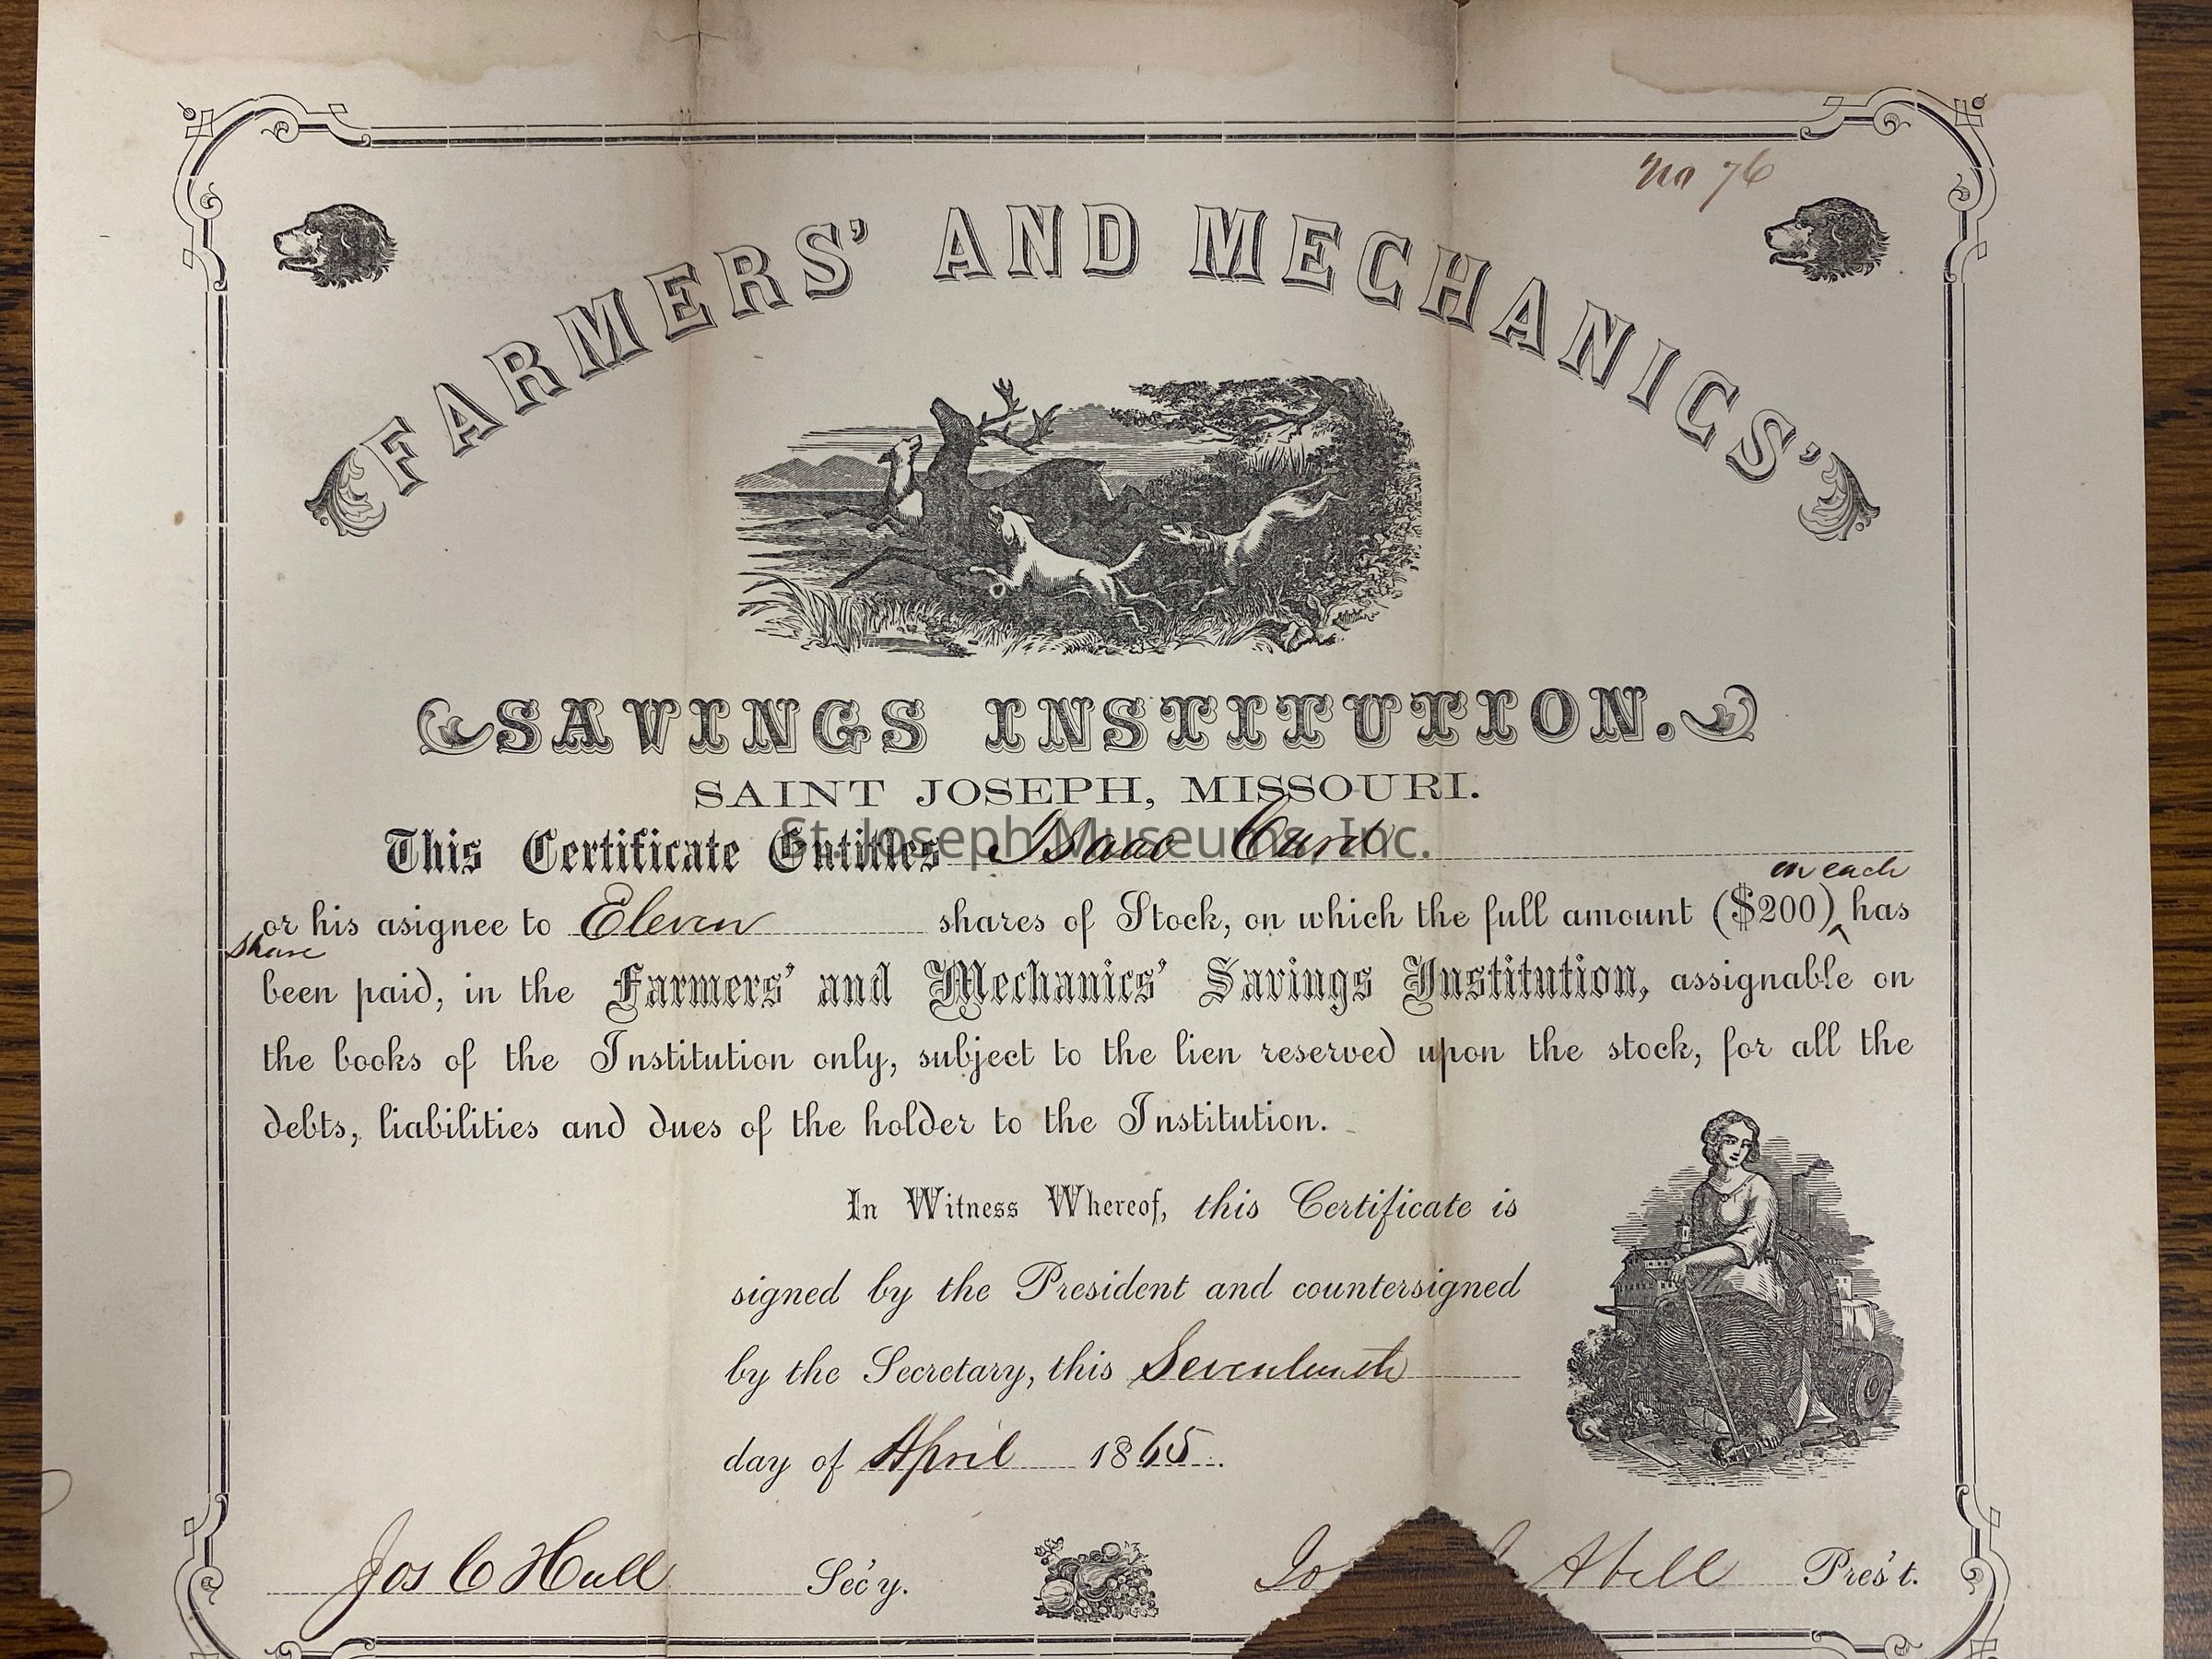 no 76
FARMERS' AND MECHANICS'
SAVINGS INSTITUTION.
SAINT JOSEPH, MISSOURI.
This Certificate Entitles Isaac Curd
St. Joseph Museums, Inc.
on each
or his asignee to Eleven shares of Stock, on which the full amount ($200)‸ has
share
been paid, in the Farmers' and Mechanics' Savings Institution, assignable on
the books of the Institution only, subject to the lien reserved upon the stock, for all the
debts, liabilities and dues of the holder to the Institution.
In Witness Whereof, this Certificate is
signed by the President and countersigned
by the Secretary, this Seventeenth
day of April 1865.
Jos C Hull Sec'y. Abell Pres't.